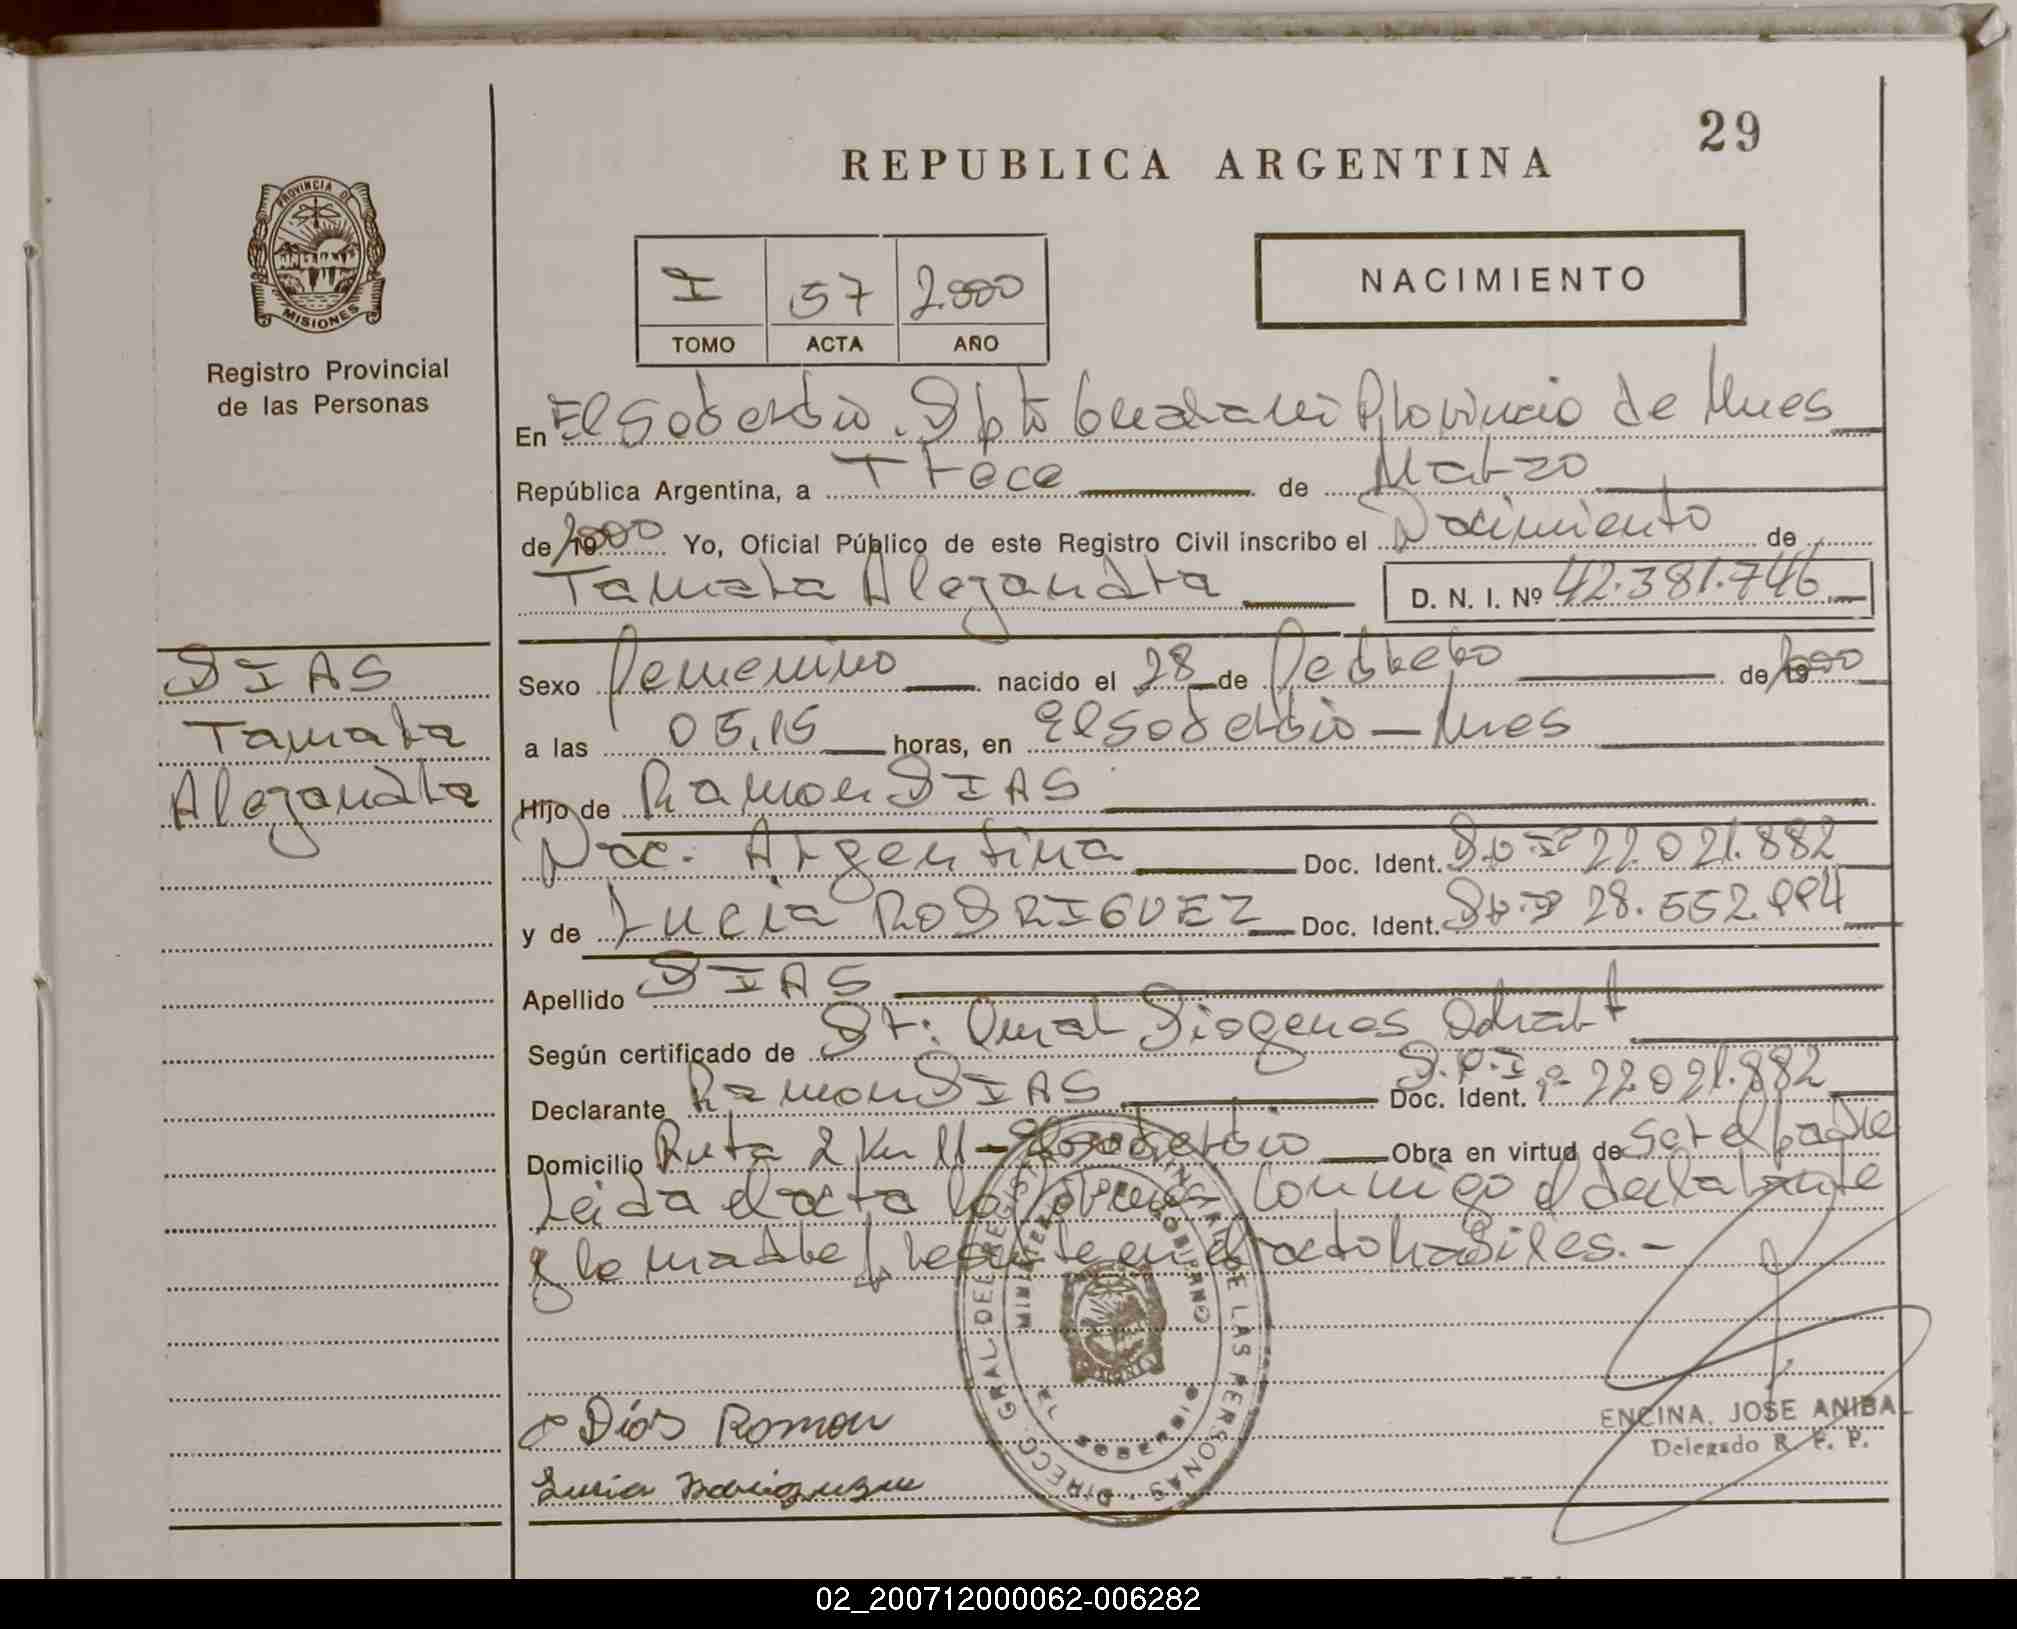 29
REPUBLICA ARGENTINA
PROVINCIA DE
MISIONES
Registro Provincial
de las Personas
I 57 2.000
TOMO ACTA AÑO
NACIMIENTO
En El Soberbio. Dpto Guarani Provincia de Mnes
República Argentina, a Trece de Marzo
de 2000 Yo, Oficial Público de este Registro Civil inscribo el Nacimiento de
Tamara Alejandra D. N. I. Nº 42.381.746
DIAS
Tamara
Alejandra
Sexo Femenino nacido el 28 de Febrero de 2000
a las 05,15 horas, en El Soberbio - Mnes
Hijo de Ramon DIAS
Nac. Argentina Doc. Ident. D.N.I 22.021.882
y de Lucia RODRIGUEZ Doc. Ident. D.N.I 28.552.994
Apellido DIAS
Según certificado de Dr: Omar Diogenes
Declarante Ramon DIAS Doc. Ident. D.N.I nº 22.021.882
Domicilio Ruta 2 Km 11 - El Soberbio Obra en virtud de Ser el padre
Leida el acta la firman conmigo el declarante
y la madre presente en el acto habiles.-
DIRECC. GRAL. DEL REGIST. PROVINCIAL DE LAS PERSONAS
MINISTERIO GOBIERNO
EL SOBERBIO
Días Ramon
Lucia Rodriguez
ENCINA, JOSE ANIBAL
Delegado R. P. P.
02_200712000062-006282